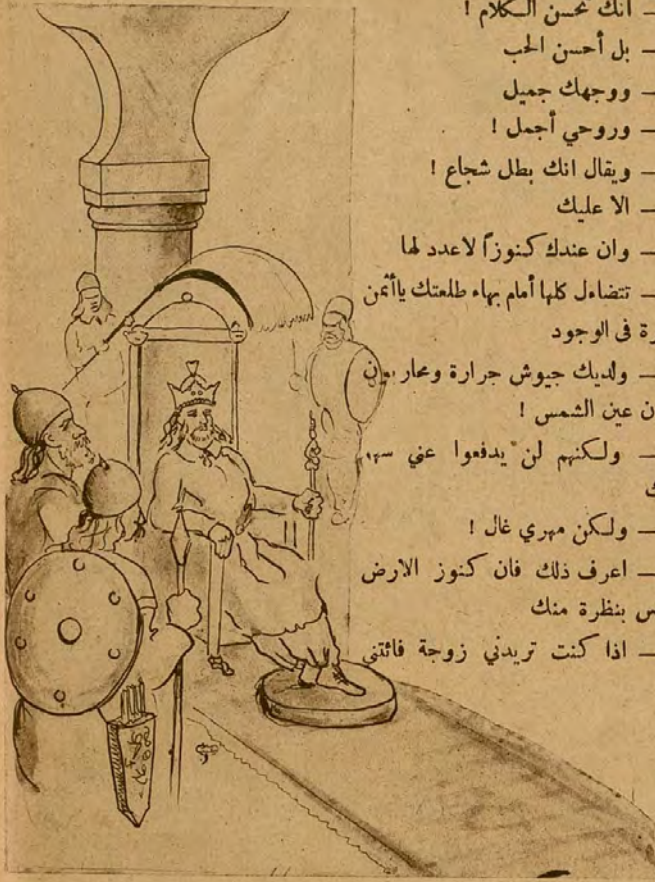 — انك تحسن الكلام !
— بل أحسن الحب
— ووجهك جميل
— وروحي أجمل !
— ويقال انك بطل شجاع !
— الا عليك
— وان عندك كنوزاً لاعدد لها
— تتضاءل كلها أمام بهاء طلعتك ياأثمن
رة فى الوجود
— ولديك جيوش جرارة ومحاربون
ن عين الشمس !
— ولكنهم لن يدفعوا عني
ك
— ولكن مهري غال !
— اعرف ذلك فان كنوز الارض
س بنظرة منك
— اذا كنت تريدني زوجة فائتني